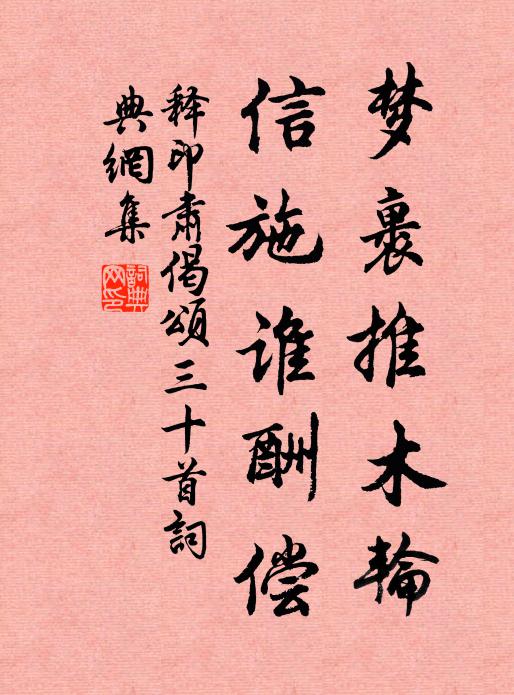 梦裹推木輪
信施谁酬偿
释印肃偈頌三十首詞
典網集
詞典网印